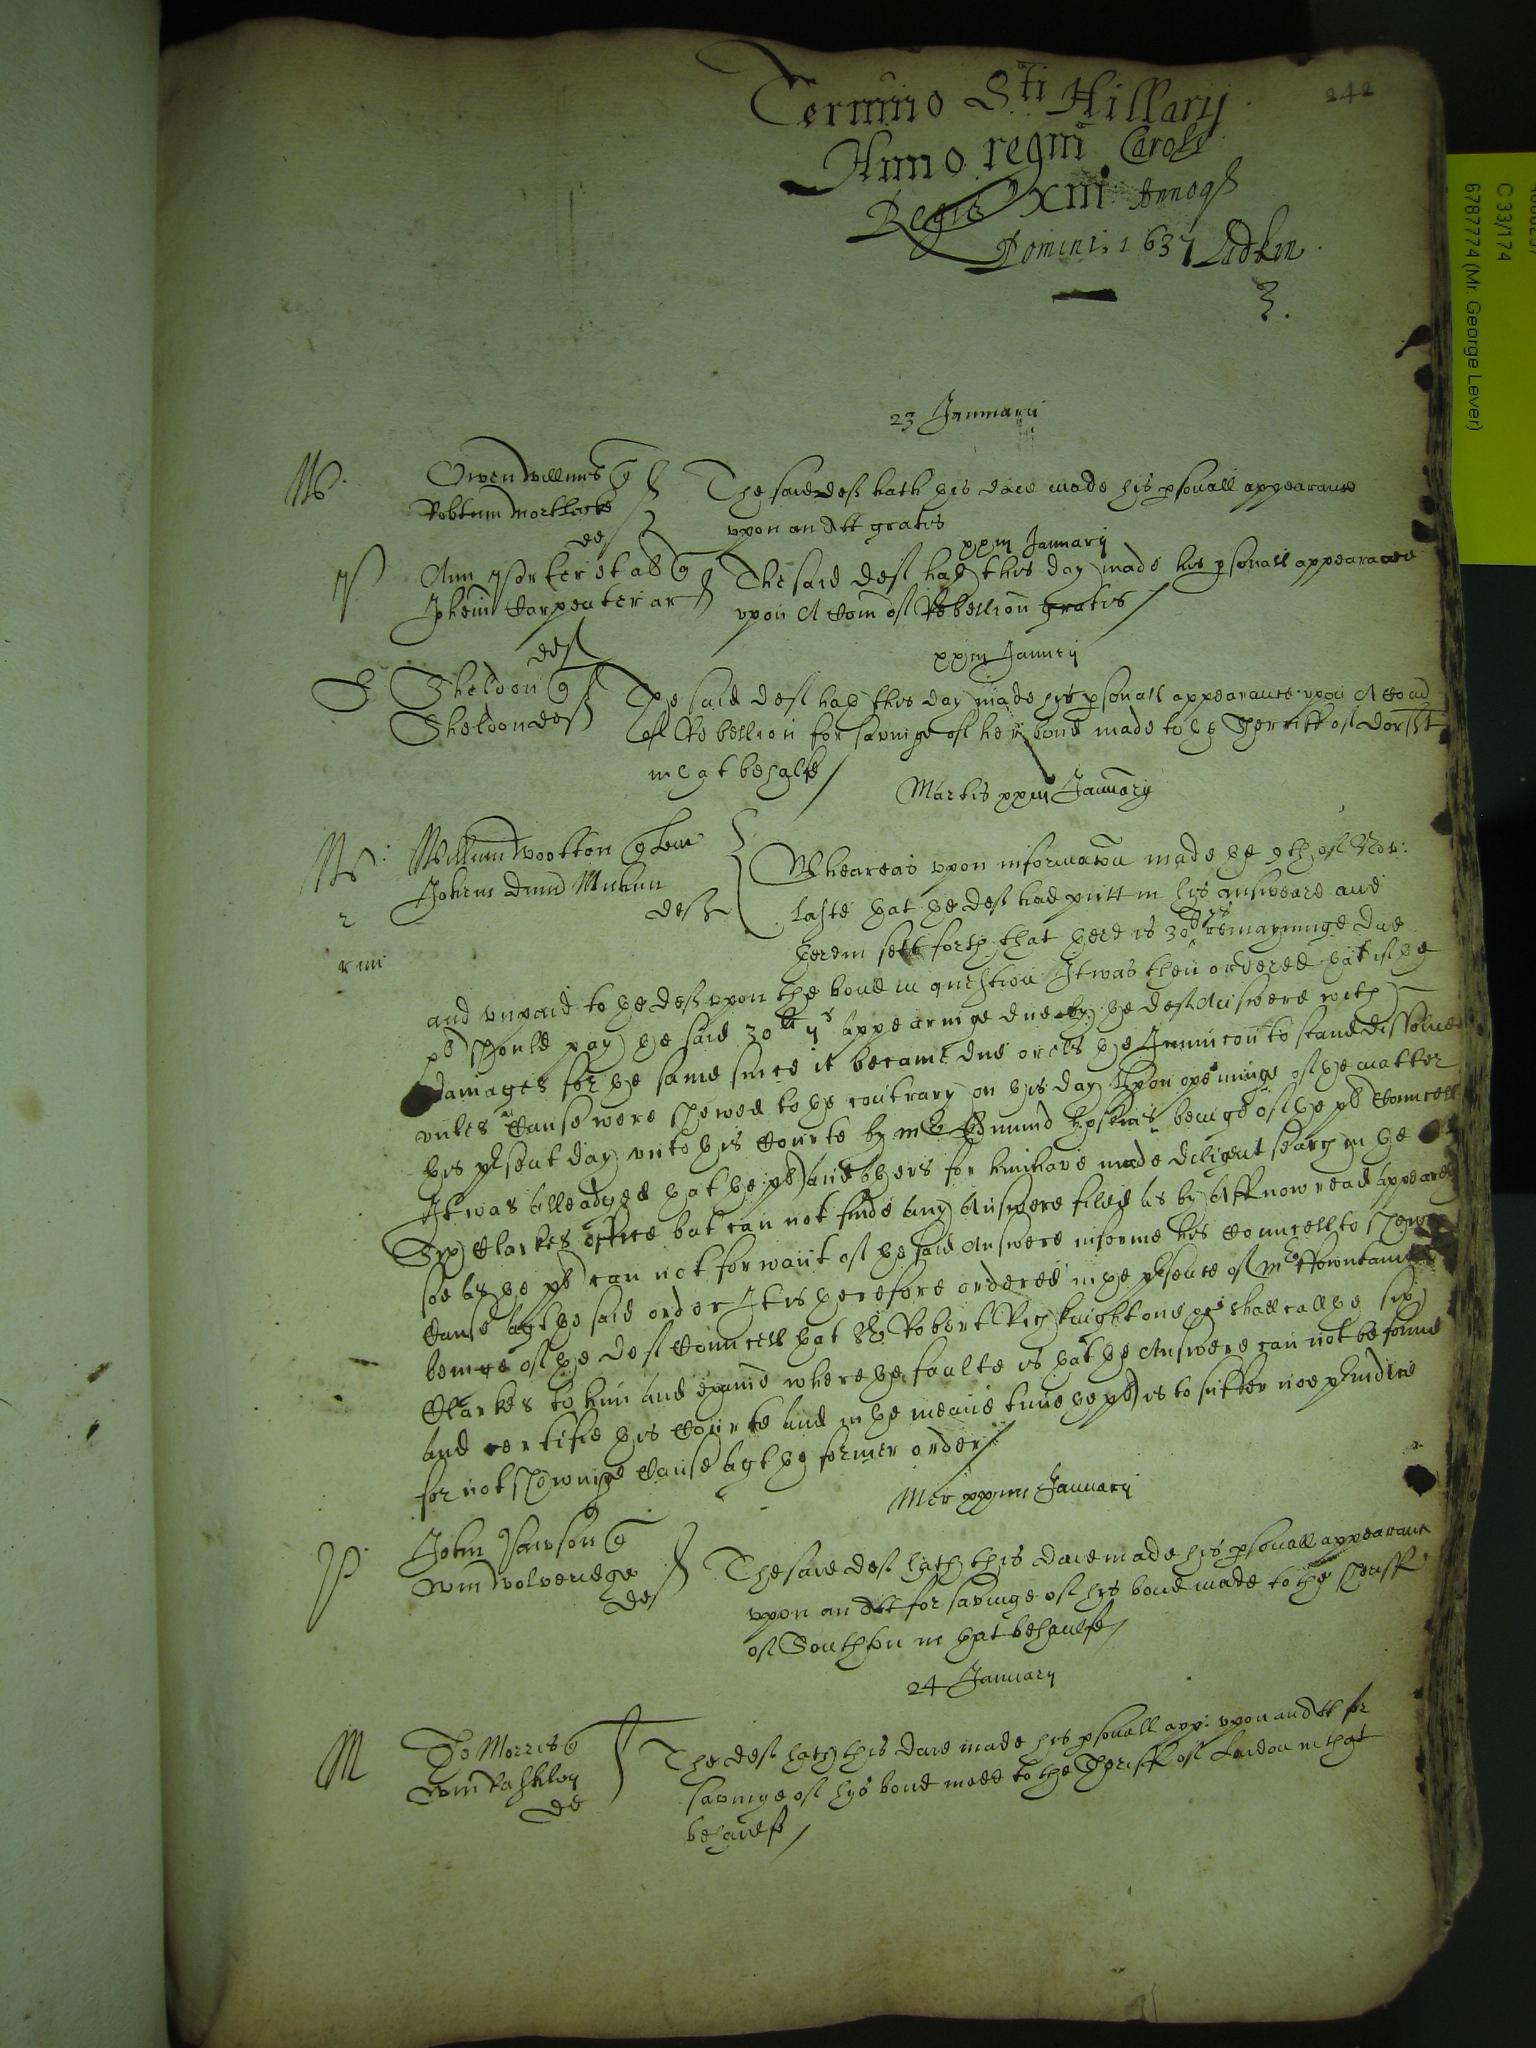 242
Termino Sti Hillarij
Anno regni Caroli
Regis XIII Annoq
Domini 1637
3.
C 33/174
6787774 (Mr. George Lever)
23 Januarii
W. Owen Willims q The said def hath this daie made his psonall appearance
Robtum Mortlock
de upon an Att gratis
xxiij January
P Ann et al q The said def hath this day made his psonall appearance
Johem Carpenter ar upon A Com of Rebellion gratis
def
xxiij January
S Sheldon q The said def hath this day made his psonall appearance upon A Com
Sheldon def of Rebellion for savinge of her bond made to the Sherriff of Dorst
in that behalfe
Martis xxiij January
W: William Wootton quer Wheareas upon informacon made the 9th of Nov:
Johem def laste that the def had putt in his answeare and
therein sett forth that there is 30li remayninge due
and unpaid to the def upon the bond in question It was then ordered that if the
pl should pay the said 30li appearinge due by the def Answere with
damages for the same since it became due or els the Iniuncon to stand dissolved
unles Cause were shewed to the contrary on this day Upon openinge of the matter
this present day unto this Courte by Mr Edmund Hoskins beinge of the pl Councell
It was alleadged that the pl and others for him have made diligent search in the
Six Clarkes office but can not finde any Answere filed as by Aff now read appeares
soe as the pl can not for want of the said Answere informe his Councell to shew
Cause agt the said order It is therefore ordered in the presence of Mr Fowntaine
beinge of the def Councell that Sr Robert Rich knight one &c shall call the six
Clarkes to him and examine where the faulte is that the Answere can not be found
and certifie this Courte And in the meane time the pl is to suffer noe preiudice
for not shewinge Cause agt the former order
Mer xxiiij January
P. John Pawson q The said def hath this daie made his psonall appearance
Wm Wolveridge upon an Att for savinge of his bond made to the Sheriff
def of Southton in that behaulfe
24 January
M Tho Morris q The def hath this daie made his psonall app: upon an Att for
Wm Pashley savinge of his bond made to the Sheriff of London in that
de behaulfe